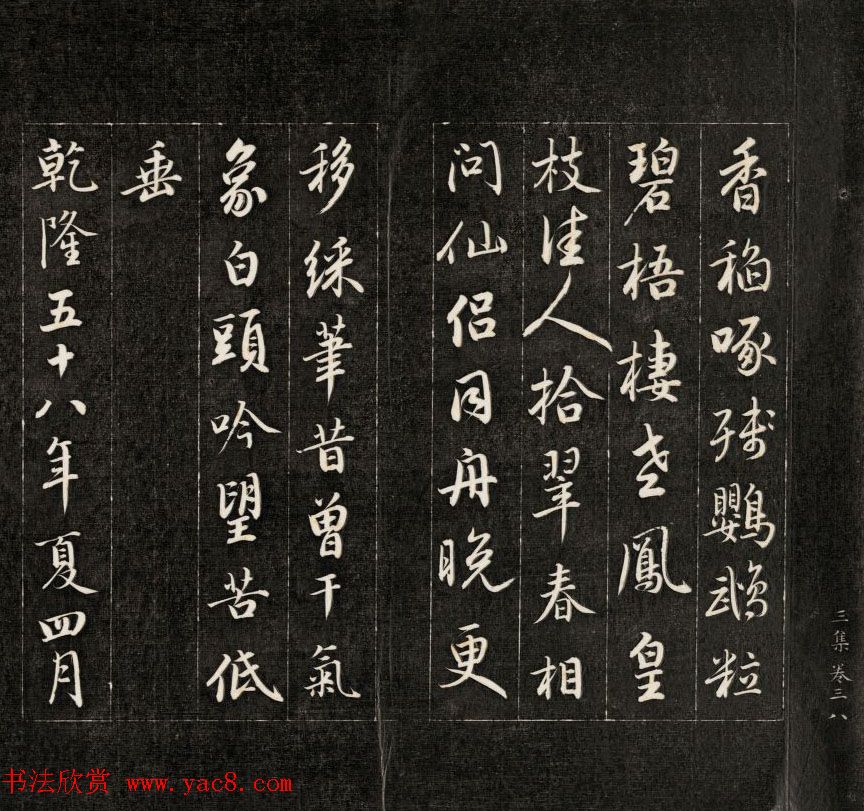 三集卷三 八
香稻啄殘鸚鵡粒
碧梧棲老鳳皇
枝佳人拾翠春相
問仙侶同舟晚更
移綵筆昔曾干氣
象白頭吟望苦低
垂
乾隆五十八年夏四月
书法欣赏 www.yac8.com